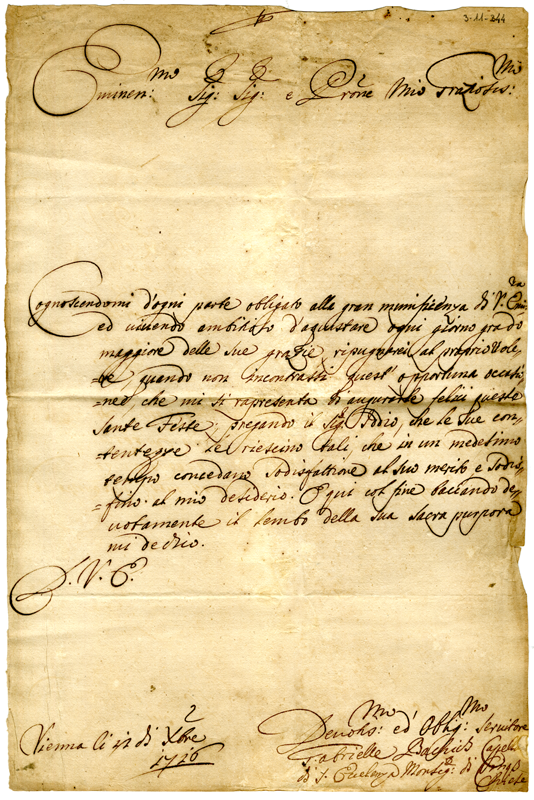 3-11-244
Eminen:mo Sig:r Sig:r e Prone Mio Graziosis:mo
Cognoscendomi d'ogni parte obligato alla gran munificenza di V. Em:za
ed vivendo ambitioso d'aquistare ogni giorno grado
maggiore delle sue grazie, ripugnerei al proprio vole-
=re, quando non incontrassi quest' opportuna occasi-
=nee che mi si rapresenta di augurarle felici queste
sante Feste, pregando il Sig:r Iddio, che le sue con-
tentezze le rieschino tali, che in un medesimo
tempo concedano sodisfattione al suo merito e sodis-
=fino al mio desiderio. E qui col fine bacciando de-
votamente il lembo della sua sacra purpora
mi dedico.
D. V. E.
Vienna li 12 di Xbre
1716
Devotis:mo ed Oblig:mo Servitore
Gabrielle
di S. Ecelenza Monsig:r di